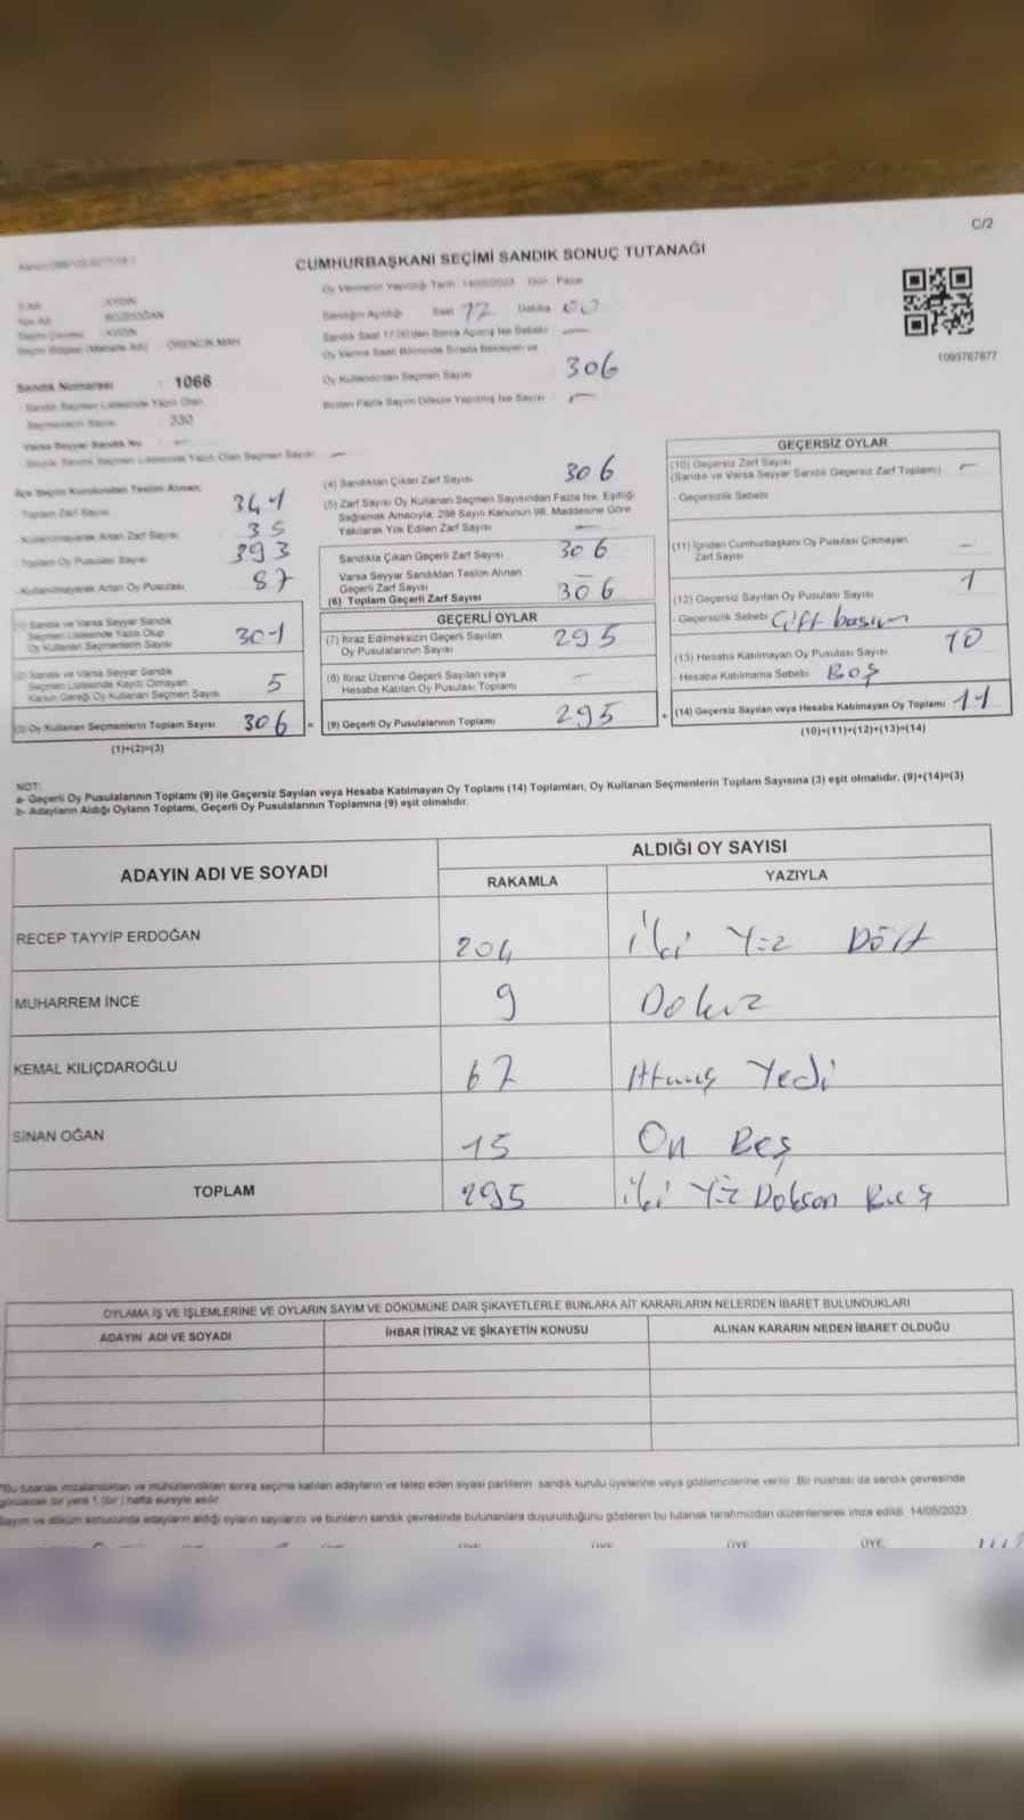 C/2
CUMHURBAŞKANI SEÇİMİ SANDIK SONUÇ TUTANAĞI
Oy Vermenin Yapıldığı Tarih: 14/05/2023 Gün: Pazar
İli Adı : AYDIN
İlçe Adı : BOZDOĞAN
Seçim Çevresi : AYDIN
Sandığın Açıldığı Saat 17 Dakika 00
Sandık Saat 17.00'den Sonra Açılmış İse Sebebi —
Oy Verme Saati Bitiminde Sırada Bekleyen ve
Oy Kullandırılan Seçmen Sayısı 306
Birden Fazla Sayım Döküm Yapılmış İse Sayısı —
1095767877
Sandık Numarası : 1066
Sandık Seçmen Listesinde Yazılı Olan
Seçmenlerin Sayısı 330
Varsa Seyyar Sandık No : —
Seyyar Sandık Seçmen Listesinde Yazılı Olan Seçmen Sayısı: —
İlçe Seçim Kurulundan Teslim Alınan;
Toplam Zarf Sayısı 341
Kullanılmayarak Artan Zarf Sayısı 35
Toplam Oy Pusulası Sayısı 393
Kullanılmayarak Artan Oy Pusulası 87
(1) Sandık ve Varsa Seyyar Sandık
Seçmen Listesinde Yazılı Olup
Oy Kullanan Seçmenlerin Sayısı 301
(2) Sandık ve Varsa Seyyar Sandık
Seçmen Listesinde Kayıtlı Olmayan
Kanun Gereği Oy Kullanan Seçmen Sayısı 5
(3) Oy Kullanan Seçmenlerin Toplam Sayısı 306 =
(1)+(2)=(3)
(4) Sandıktan Çıkan Zarf Sayısı 306
(5) Zarf Sayısı Oy Kullanan Seçmen Sayısından Fazla İse, Eşitliği
Sağlamak Amacıyla, 298 Sayılı Kanunun 98. Maddesine Göre
Yakılarak Yok Edilen Zarf Sayısı —
Sandıkta Çıkan Geçerli Zarf Sayısı 306
Varsa Seyyar Sandıktan Teslim Alınan
Geçerli Zarf Sayısı —
(6) Toplam Geçerli Zarf Sayısı 306
GEÇERLİ OYLAR
(7) İtiraz Edilmeksizin Geçerli Sayılan
Oy Pusulalarının Sayısı 295
(8) İtiraz Üzerine Geçerli Sayılan veya
Hesaba Katılan Oy Pusulası Toplamı —
(9) Geçerli Oy Pusulalarının Toplamı 295 +
GEÇERSİZ OYLAR
(10) Geçersiz Zarf Sayısı
(Sandık ve Varsa Seyyar Sandık Geçersiz Zarf Toplamı) —
- Geçersizlik Sebebi
(11) İçinden Cumhurbaşkanı Oy Pusulası Çıkmayan
Zarf Sayısı —
(12) Geçersiz Sayılan Oy Pusulası Sayısı 1
- Geçersizlik Sebebi Çift basım
(13) Hesaba Katılmayan Oy Pusulası Sayısı 10
- Hesaba Katılmama Sebebi BOŞ
(14) Geçersiz Sayılan veya Hesaba Katılmayan Oy Toplamı 11
(10)+(11)+(12)+(13)=(14)
NOT:
a- Geçerli Oy Pusulalarının Toplamı (9) ile Geçersiz Sayılan veya Hesaba Katılmayan Oy Toplamı (14) Toplamları, Oy Kullanan Seçmenlerin Toplam Sayısına (3) eşit olmalıdır. (9)+(14)=(3)
b- Adayların Aldığı Oyların Toplamı, Geçerli Oy Pusulalarının Toplamına (9) eşit olmalıdır.
ADAYIN ADI VE SOYADI ALDIĞI OY SAYISI
RAKAMLA YAZIYLA
RECEP TAYYİP ERDOĞAN 204 iki Yüz Dört
MUHARREM İNCE 9 Dokuz
KEMAL KILIÇDAROĞLU 67 Atmış Yedi
SİNAN OĞAN 15 On Beş
TOPLAM 295 iki Yüz Doksan Beş
OYLAMA İŞ VE İŞLEMLERİNE VE OYLARIN SAYIM VE DÖKÜMÜNE DAİR ŞİKAYETLERLE BUNLARA AİT KARARLARIN NELERDEN İBARET BULUNDUKLARI
ADAYIN ADI VE SOYADI İHBAR İTİRAZ VE ŞİKAYETİN KONUSU ALINAN KARARIN NEDEN İBARET OLDUĞU
*Bu tutanak imzalandıktan ve mühürlendikten sonra seçime katılan adayların ve talep eden siyasi partilerin sandık kurulu üyelerine veya gözlemcilerine verilir. Bir nüshası da sandık çevresinde
görülecek bir yere 1 (bir) hafta süreyle asılır.
Sayım ve döküm sonucunda adayların aldığı oyların sayılarını ve bunların sandık çevresinde bulunanlara duyurulduğunu gösteren bu tutanak tarafımızdan düzenlenerek imza edildi. 14/05/2023
ÜYE ÜYE